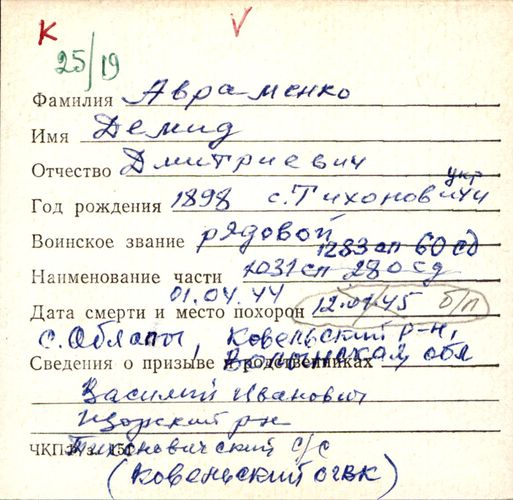 К V
25/19
Фамилия Авраменко
Имя Демид
Отчество Дмитриевич
укр
Год рождения 1898 с. Тихоновичи
Воинское звание рядовой
1283 сп 60 сд
Наименование части 1031 сп 280 сд
01.04.44
Дата смерти и место похорон 12.01.45 б/п
с. Облапы, Ковельский р-н,
Сведения о призыве и родственниках Волынская обл
Василий Иванович
р-н
Тихоновичский с/с
ЧКПП з. 151
(Ковельский ОГВК)